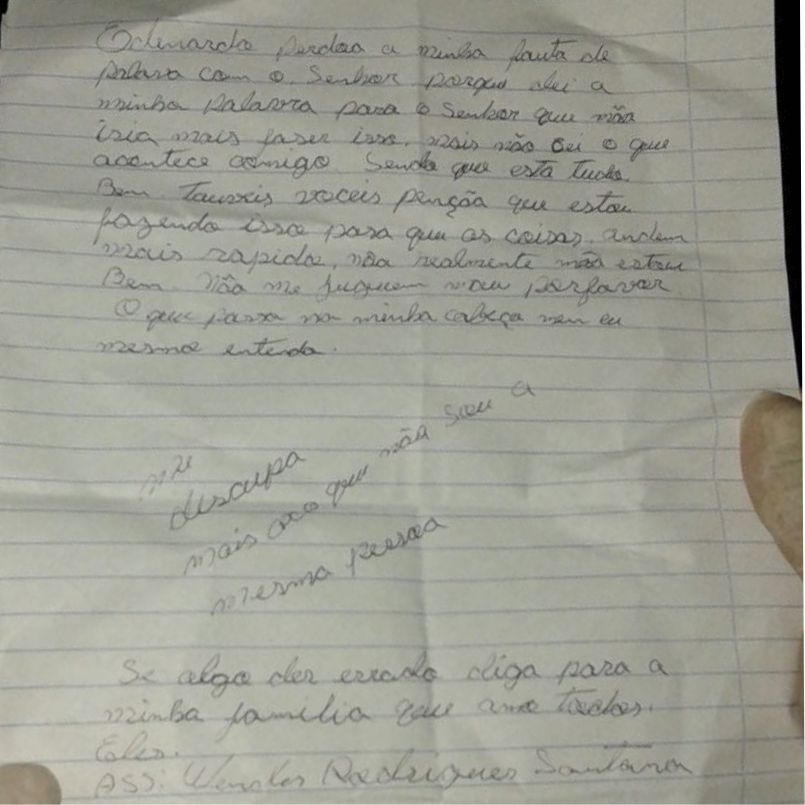 Edenardo perdoa a minha fauta de
palava com o. Senhor porque dei a
minha palavra para o Senhor que não
iria mais faser isso. mais não sei o que
acontece comigo Sendo que esta tudo.
Bem Tauveis voceis pensãa que estou
fazendo isso para que as coisas. andem
mais rapido, não realmente não estou
Bem. Não me juguem mau porfavor.
O que passa na minha cabeça nem eu
mesmo entendo.
me
descupa
mais axo que não sou a
mesma pessoa
Se algo der errado diga para a
minha familia que amo todos.
Eles.
ASS: Rodrigues Santana